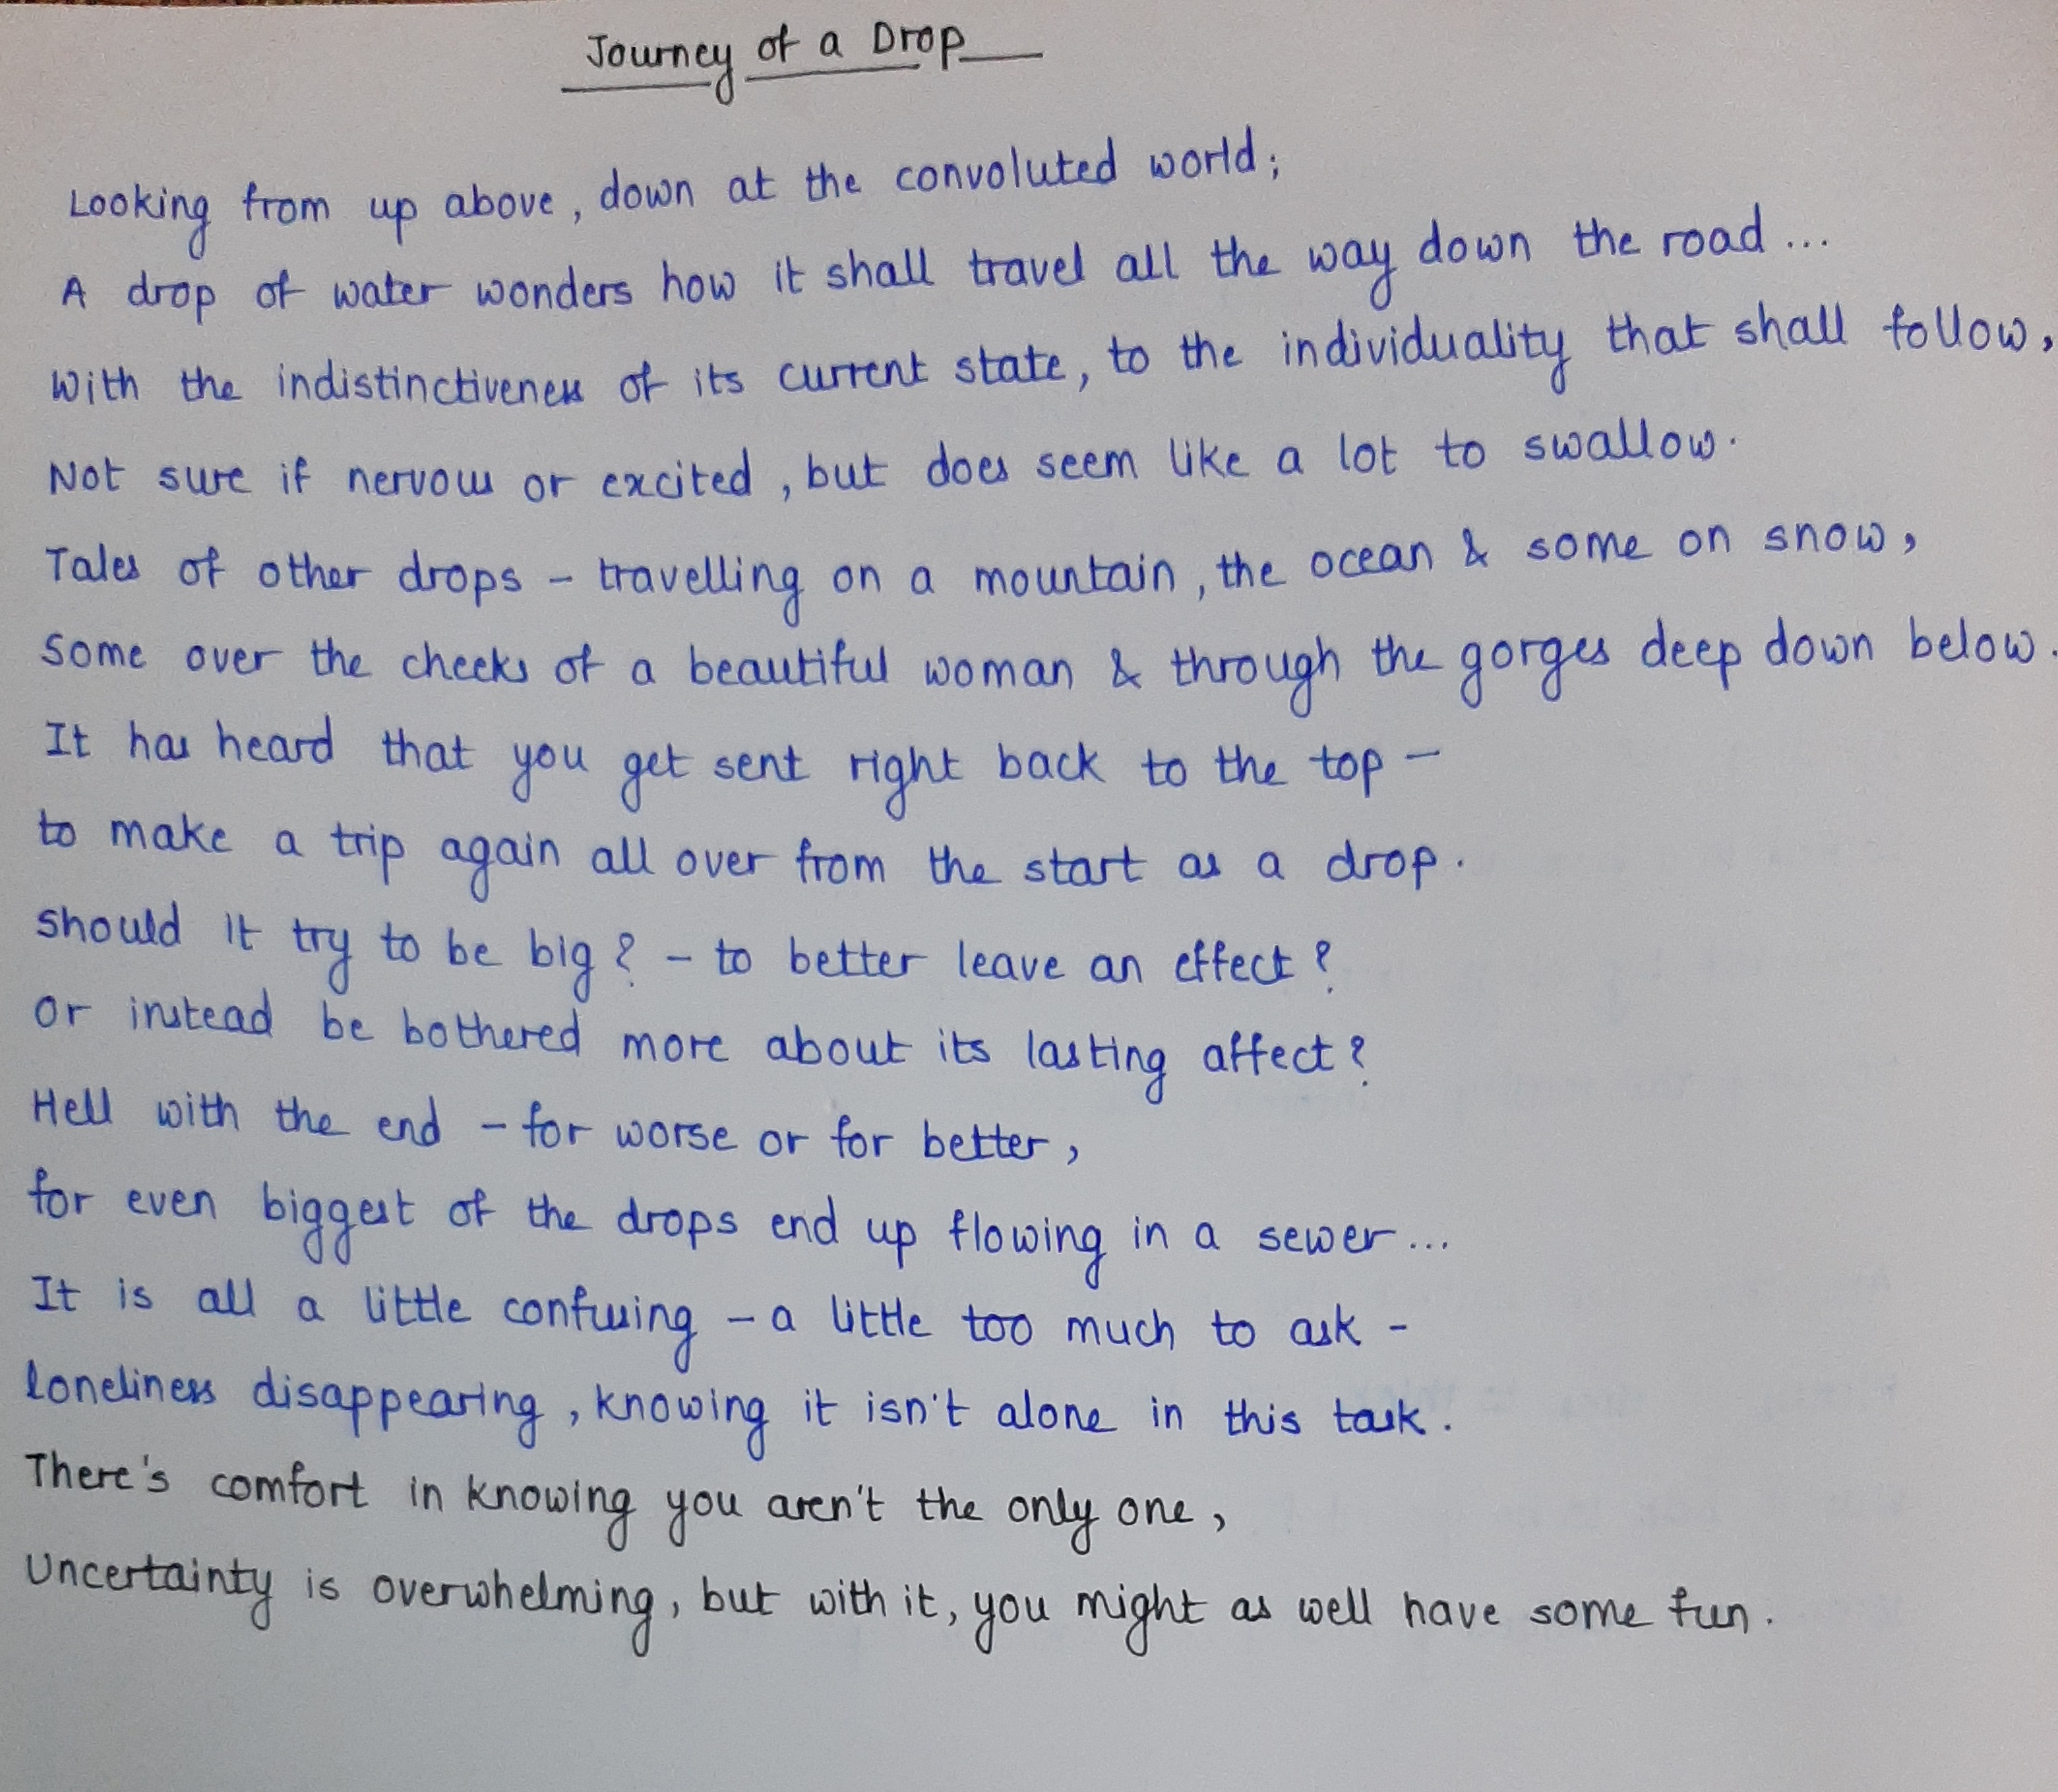 Journey of a Drop
Looking from up above, down at the convoluted world;
A drop of water wonders how it shall travel all the way down the road...
With the indistinctiveness of its current state, to the individuality that shall follow,
Not sure if nervous or excited, but does seem like a lot to swallow.
Tales of other drops - travelling on a mountain, the ocean & some on snow,
Some over the cheeks of a beautiful woman & through the gorges deep down below.
It has heard that you get sent right back to the top -
to make a trip again all over from the start as a drop.
Should it try to be big? - to better leave an effect?
Or instead be bothered more about its lasting affect?
Hell with the end - for worse or for better,
for even biggest of the drops end up flowing in a sewer...
It is all a little confusing - a little too much to ask -
loneliness disappearing, knowing it isn't alone in this task.
There's comfort in knowing you aren't the only one,
Uncertainty is overwhelming, but with it, you might as well have some fun.